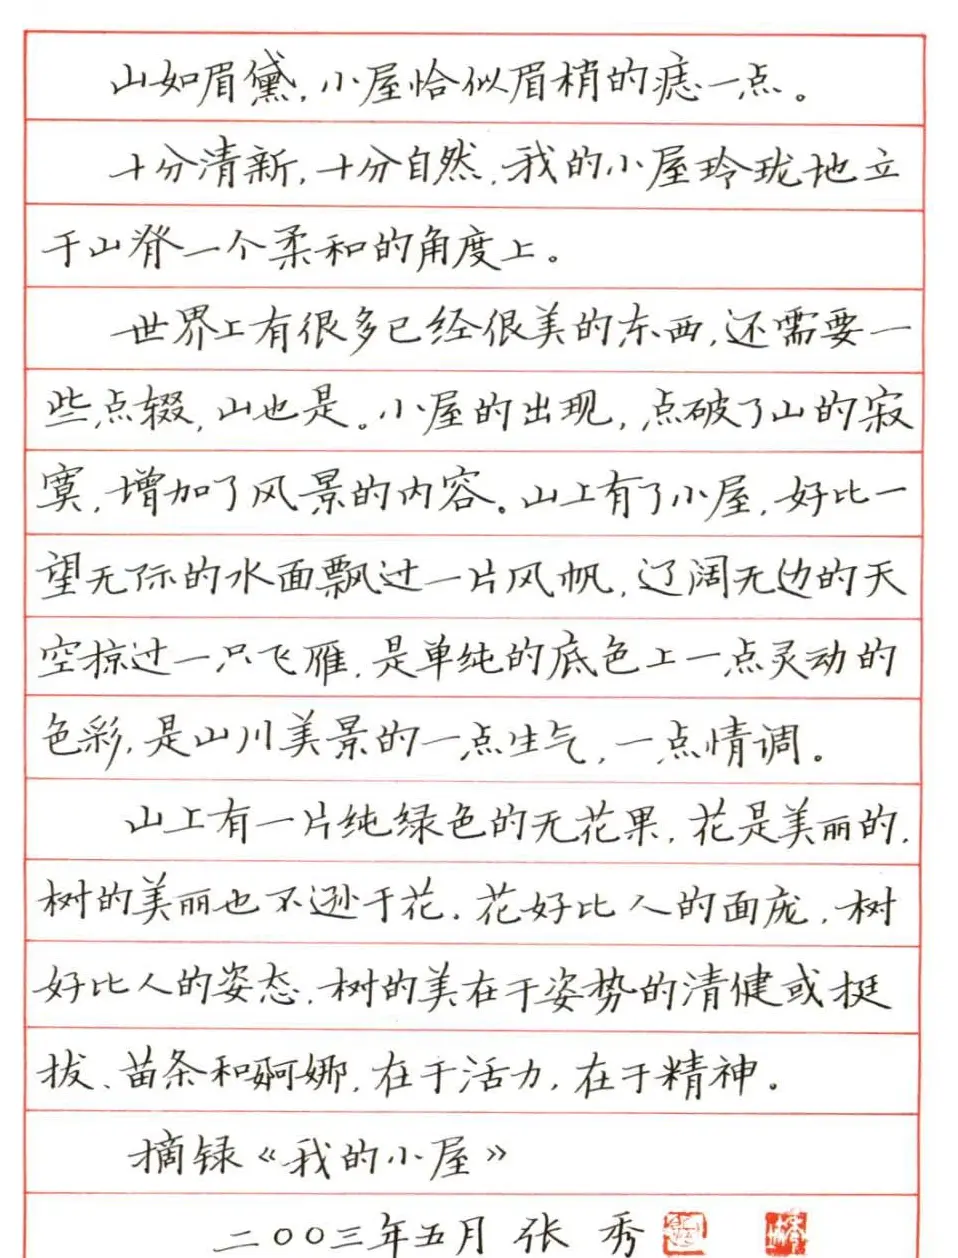 山如眉黛，小屋恰似眉梢的痣一点。
十分清新，十分自然，我的小屋玲珑地立
于山脊一个柔和的角度上。
世界上有很多已经很美的东西，还需要一
些点缀，山也是。小屋的出现，点破了山的寂
寞，增加了风景的内容。山上有了小屋，好比一
望无际的水面飘过一片风帆，辽阔无边的天
空掠过一只飞雁，是单纯的底色上一点灵动的
色彩，是山川美景的一点生气，一点情调。
山上有一片纯绿色的无花果，花是美丽的，
树的美丽也不逊于花。花好比人的面庞，树
好比人的姿态，树的美在于姿势的清健或挺
拔、苗条和婀娜，在于活力，在于精神。
摘录《我的小屋》
二〇〇三年五月 张 秀